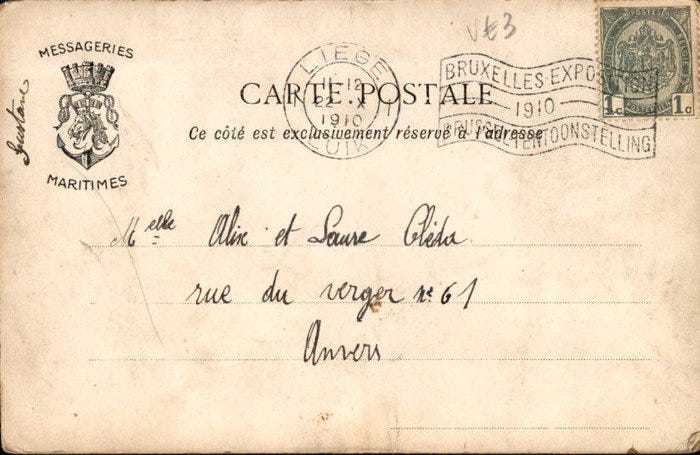 MESSAGERIES
MARITIMES
Gustave
LIEGE
11-12
22 X
1910
LUIK
BRUXELLES-EXPOSITION
1910
BRUSSEL TENTOONSTELLING
1c 1c
CARTE POSTALE
Ce côté est exclusivement réservé à l'adresse
Melle Alix et Laure
rue du verger n° 61
Anvers